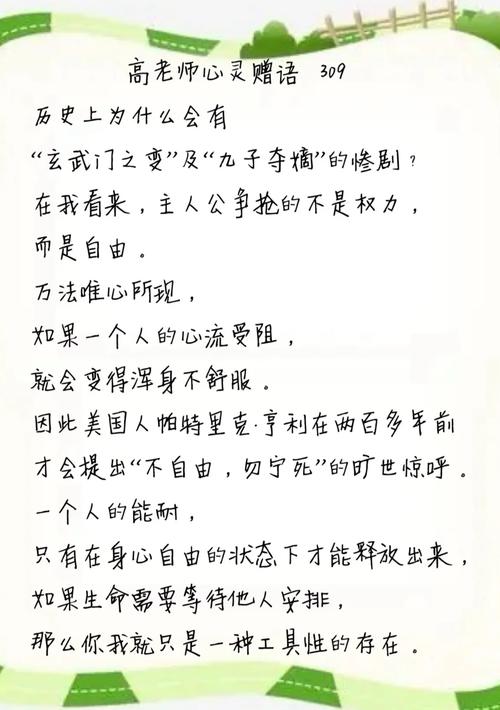 高老师心灵赠语 309
历史上为什么会有
“玄武门之变”及“九子夺嫡”的惨剧？
在我看来，主人公争抢的不是权力，
而是自由。
万法唯心所现，
如果一个人的心流受阻，
就会变得浑身不舒服。
因此美国人帕特里克·亨利在两百多年前
才会提出“不自由，勿宁死”的旷世惊呼。
一个人的能耐，
只有在身心自由的状态下才能释放出来，
如果生命需要等待他人安排，
那么你我就只是一种工具性的存在。